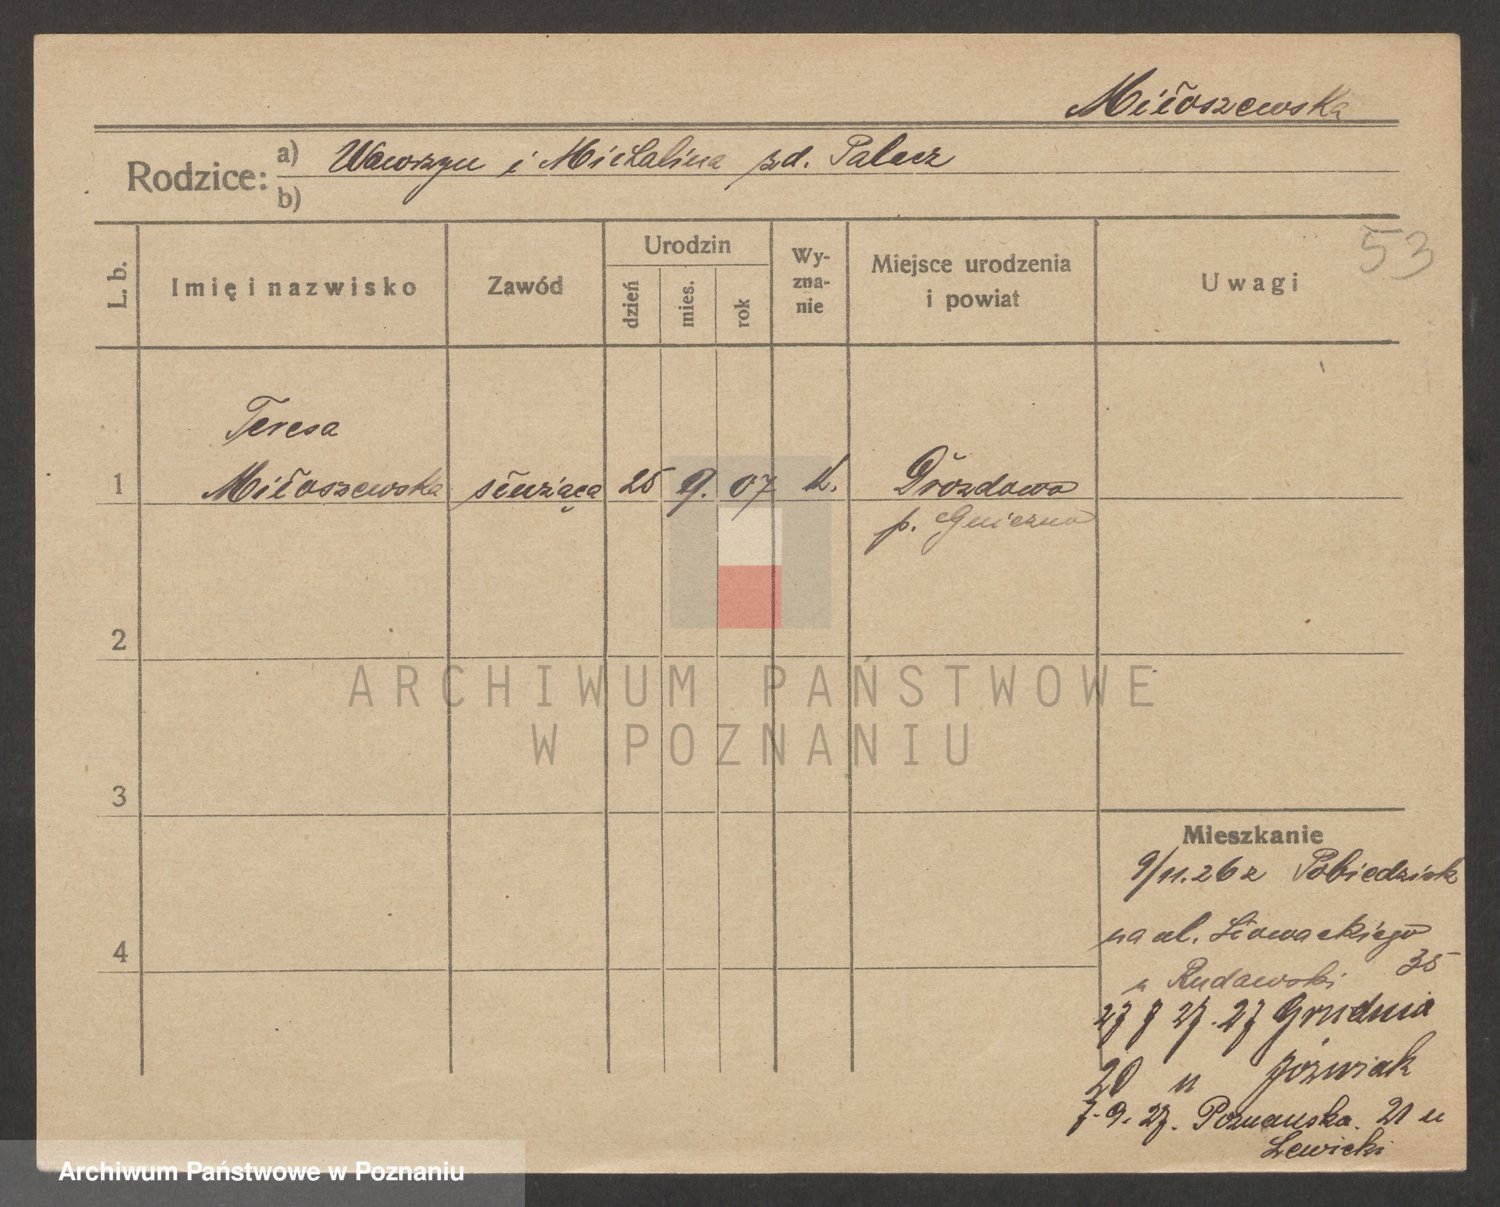 Miłoszewska
Rodzice: a) Wawrzyn i Michalina zd. Palacz
b)
L. b.
Imię i nazwisko
Zawód
Urodzin
dzień
mies.
rok
Wy-
zna-
nie
Miejsce urodzenia
i powiat
Uwagi
53
Teresa
1 Miłoszewska służąca 25 9. 07 k. Drozdowo
p. Gniezno
2
3
4
ARCHIWUM PAŃSTWOWE
W POZNANIU
Mieszkanie
9/11.26 z Pobiedzisk
na ul. Słowackiego
35
u Rudawski
27 Grudnia
20 u Jóźwiak
7.9.27. Poznańska. 21 u
Lewicki
Archiwum Państwowe w Poznaniu